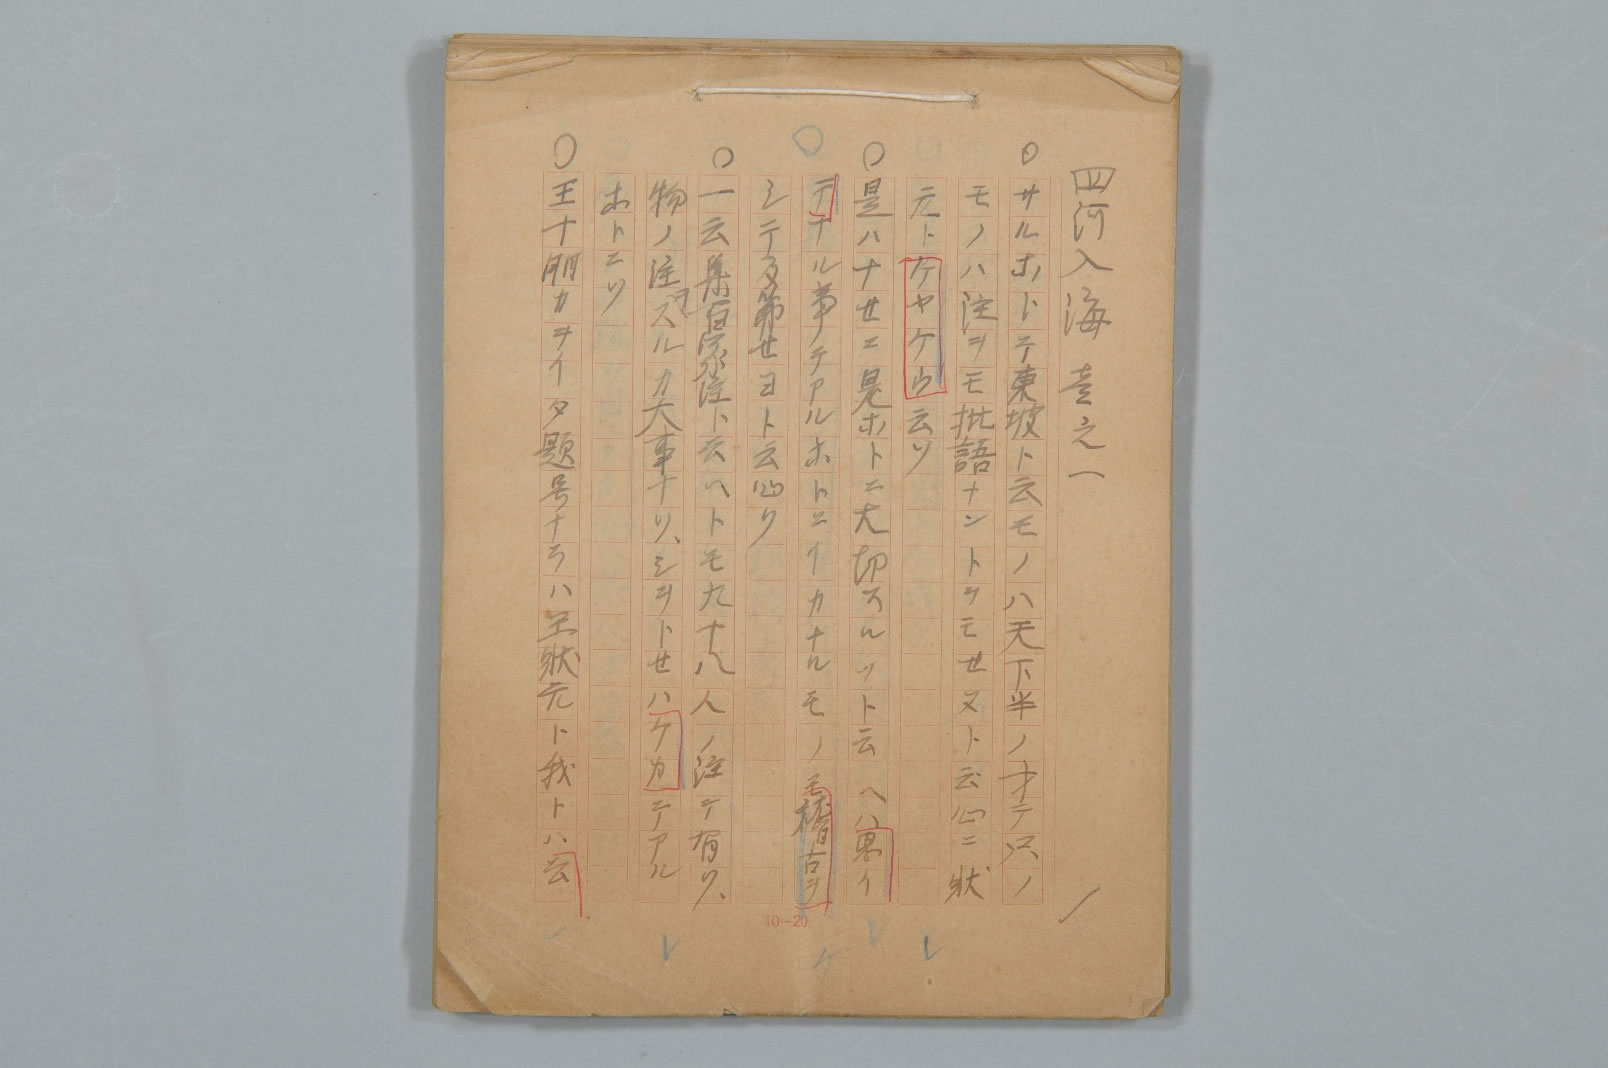 四河入海 壱之一
サルホドニ東坡ト云モノハ天下半ノ才テ只ノ
モノハ注ヲモ批語ナントヲモセヌト云心ニ状
元トケヤケウ云ソ
是ハナセニ是ホトニ大切スルソト云ヘハ悪イ
テナル事テアルホトニイカナルモノモ稽古ヲ
シテ及第セヨト云心ソ
一云集百家注ト云ヘトモ九十八人ノ注テ有ソ、
物ノ注スルカ大事ナソ、シヲトセハケカニテアル
ホトニソ
王十朋カヲイタ題号ナラハ王状元ト我トハ云
10—20